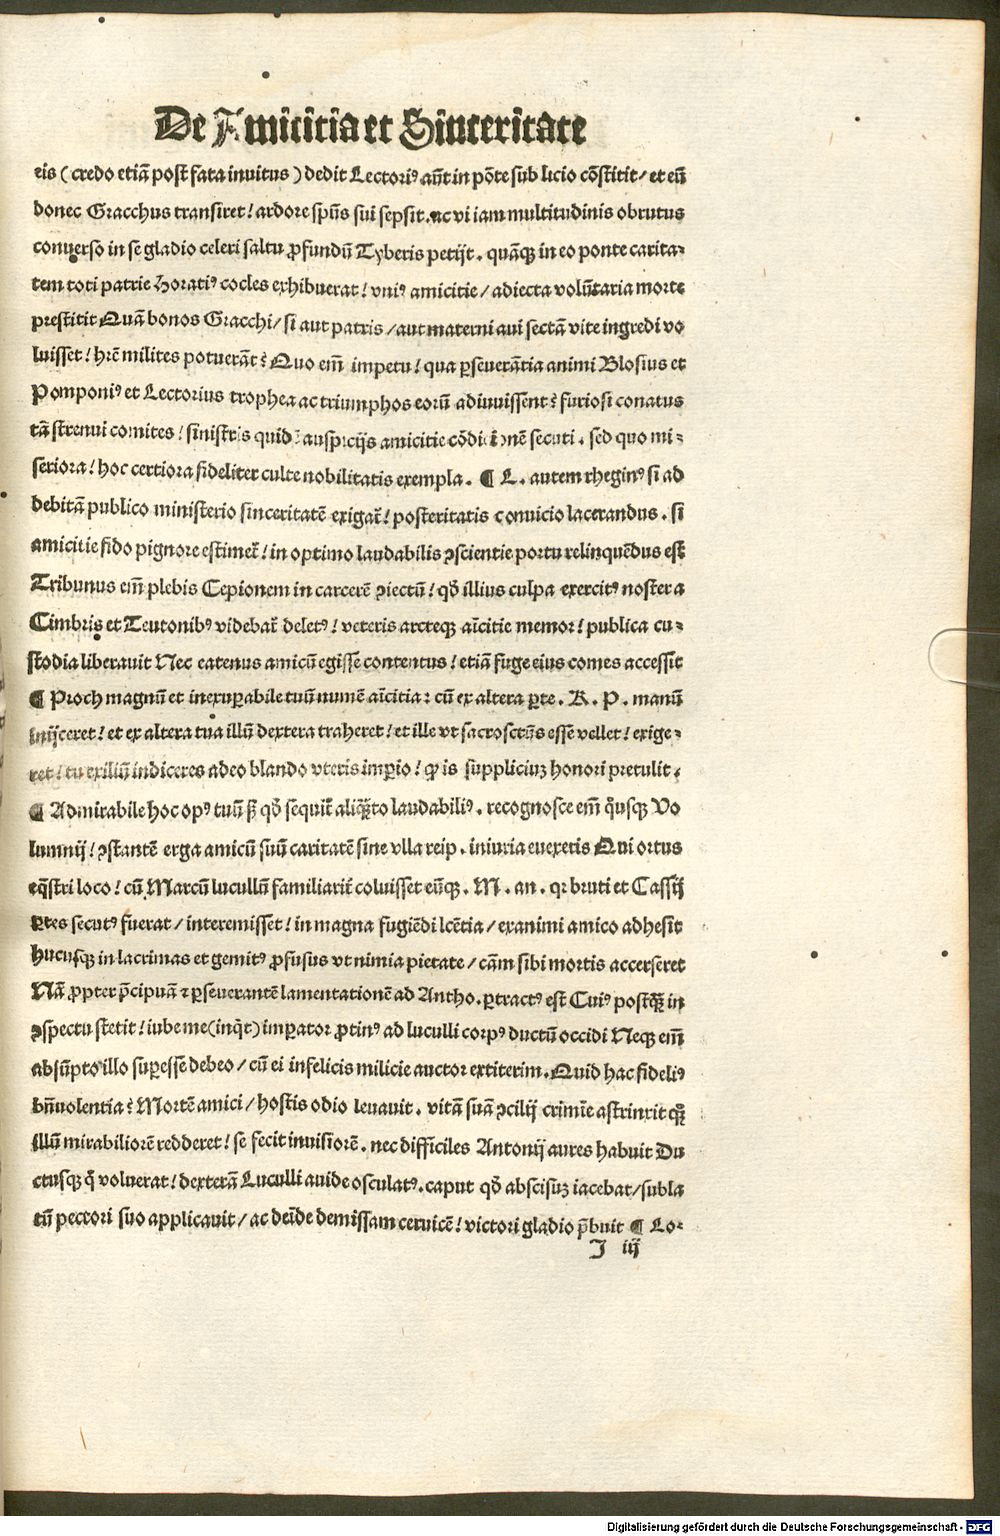 De Amicitia et Sinceritate
eis (credo etiā post fata inuitus) dedit Lectoriꝰ aūt in pōte sub licio cōstitit / et eū
donec Gracchus transiret! ardore spūs sui sepsit. ac vi iam multitudinis obrutus
conuerso in se gladio celeri saltu ꝓfundū Tyberis petijt. quāqꝫ in eo ponte carita⸗
tem toti patrie Horatiꝰ cocles exhibuerat! vniꝰ amicitie / adiecta volūtaria morte
prestitit Quā bonos Gracchi / si aut patris / aut materni aui sectā vite ingredi vo
luisset! hr̄e milites potuerāt? Quo em̄ impetu! qua ꝑseuerātia animi Blosius et
Pomponiꝰ et Lectorius trophea ac triumphos eorū adiuuissent? furiosi conatus
tā strenui comites! sinistris quidē auspicijs amicitie cōdicionē secuti. sed quo mi⸗
seriora! hoc certiora fideliter culte nobilitatis exempla. ¶ L. autem rheginꝰ si ad
debitā publico ministerio sinceritatē exigat̄! posteritatis conuicio lacerandus. si
amicitie fido pignore estimet̄! in optimo laudabilis ꝯscientie portu relinquēdus est
Tribunus em̄ plebis Cepionem in carcerē ꝯiectū! qd̄ illius culpa exercitꝰ noster a
Cimbris et Teutonibꝰ videbat̄ deletꝰ! veteris arcteqꝫ aīcitie memor! publica cu⸗
stodia liberauit Nec eatenus amicū egisse contentus! etiā fuge eius comes accessit
¶ Proch magnū et inexuꝑabile tuū numē aīcitia: cū ex altera ꝑte. R. P. manū
inijceret! et ex altera tua illū dextera traheret! et ille vt sacrosctūs esse vellet! exige⸗
ret! tu exiliū indiceres adeo blando vteris imꝑio! ꝙ is suppliciuꝫ honori pretulit.
¶ Admirabile hoc opꝰ tuū sꝫ qd̄ sequit̄ aliqꝫto laudabiliꝰ. recognosce em̄ qͥusqꝫ Vo
lumnij! ꝯstantē erga amicū suū caritatē sine vlla reip. iniuria euexeris Qui ortus
eq̄stri loco! cū Marcū lucullū familiarit̄ coluisset eūqꝫ. M. an. qꝛ bruti et Cassij
ꝑtes secutꝰ fuerat / interemisset! in magna fugiēdi lcētia / exanimi amico adhesit
hucusqꝫ in lacrimas et gemitꝰ ꝓfusus vt nimia pietate / cām sibi mortis accerseret
Nā ꝓpter p̄cipuā ⁊ ꝑseuerantē lamentationē ad Antho. ꝑtractꝰ est Cuiꝰ postqꝫ in
ꝯspectu stetit! iube me (inq̄t) imꝑator ꝓtinꝰ ad luculli corpꝰ ductū occidi Neqꝫ em̄
absūpto illo suꝑesse debeo / cū ei infelicis milicie auctor extiterim. Quid hac fideliꝰ
bn̄uolentia? Mortē amici / hostis odio leuauit. vitā suā ꝯcilij crimīe astrinxit qꝫ
illū mirabiliorē redderet! se fecit inuisiorē. nec difficiles Antonij aures habuit Du
ctusqꝫ q̊ voluerat! dexterā Luculli auide osculatꝰ. caput qd̄ abscisuꝫ iacebat / subla
tū pectori suo applicauit / ac deīde demissam ceruicē! victori gladio p̄buit ¶ Lo⸗
I iij
Digitalisierung gefördert durch die Deutsche Forschungsgemeinschaft - DFG